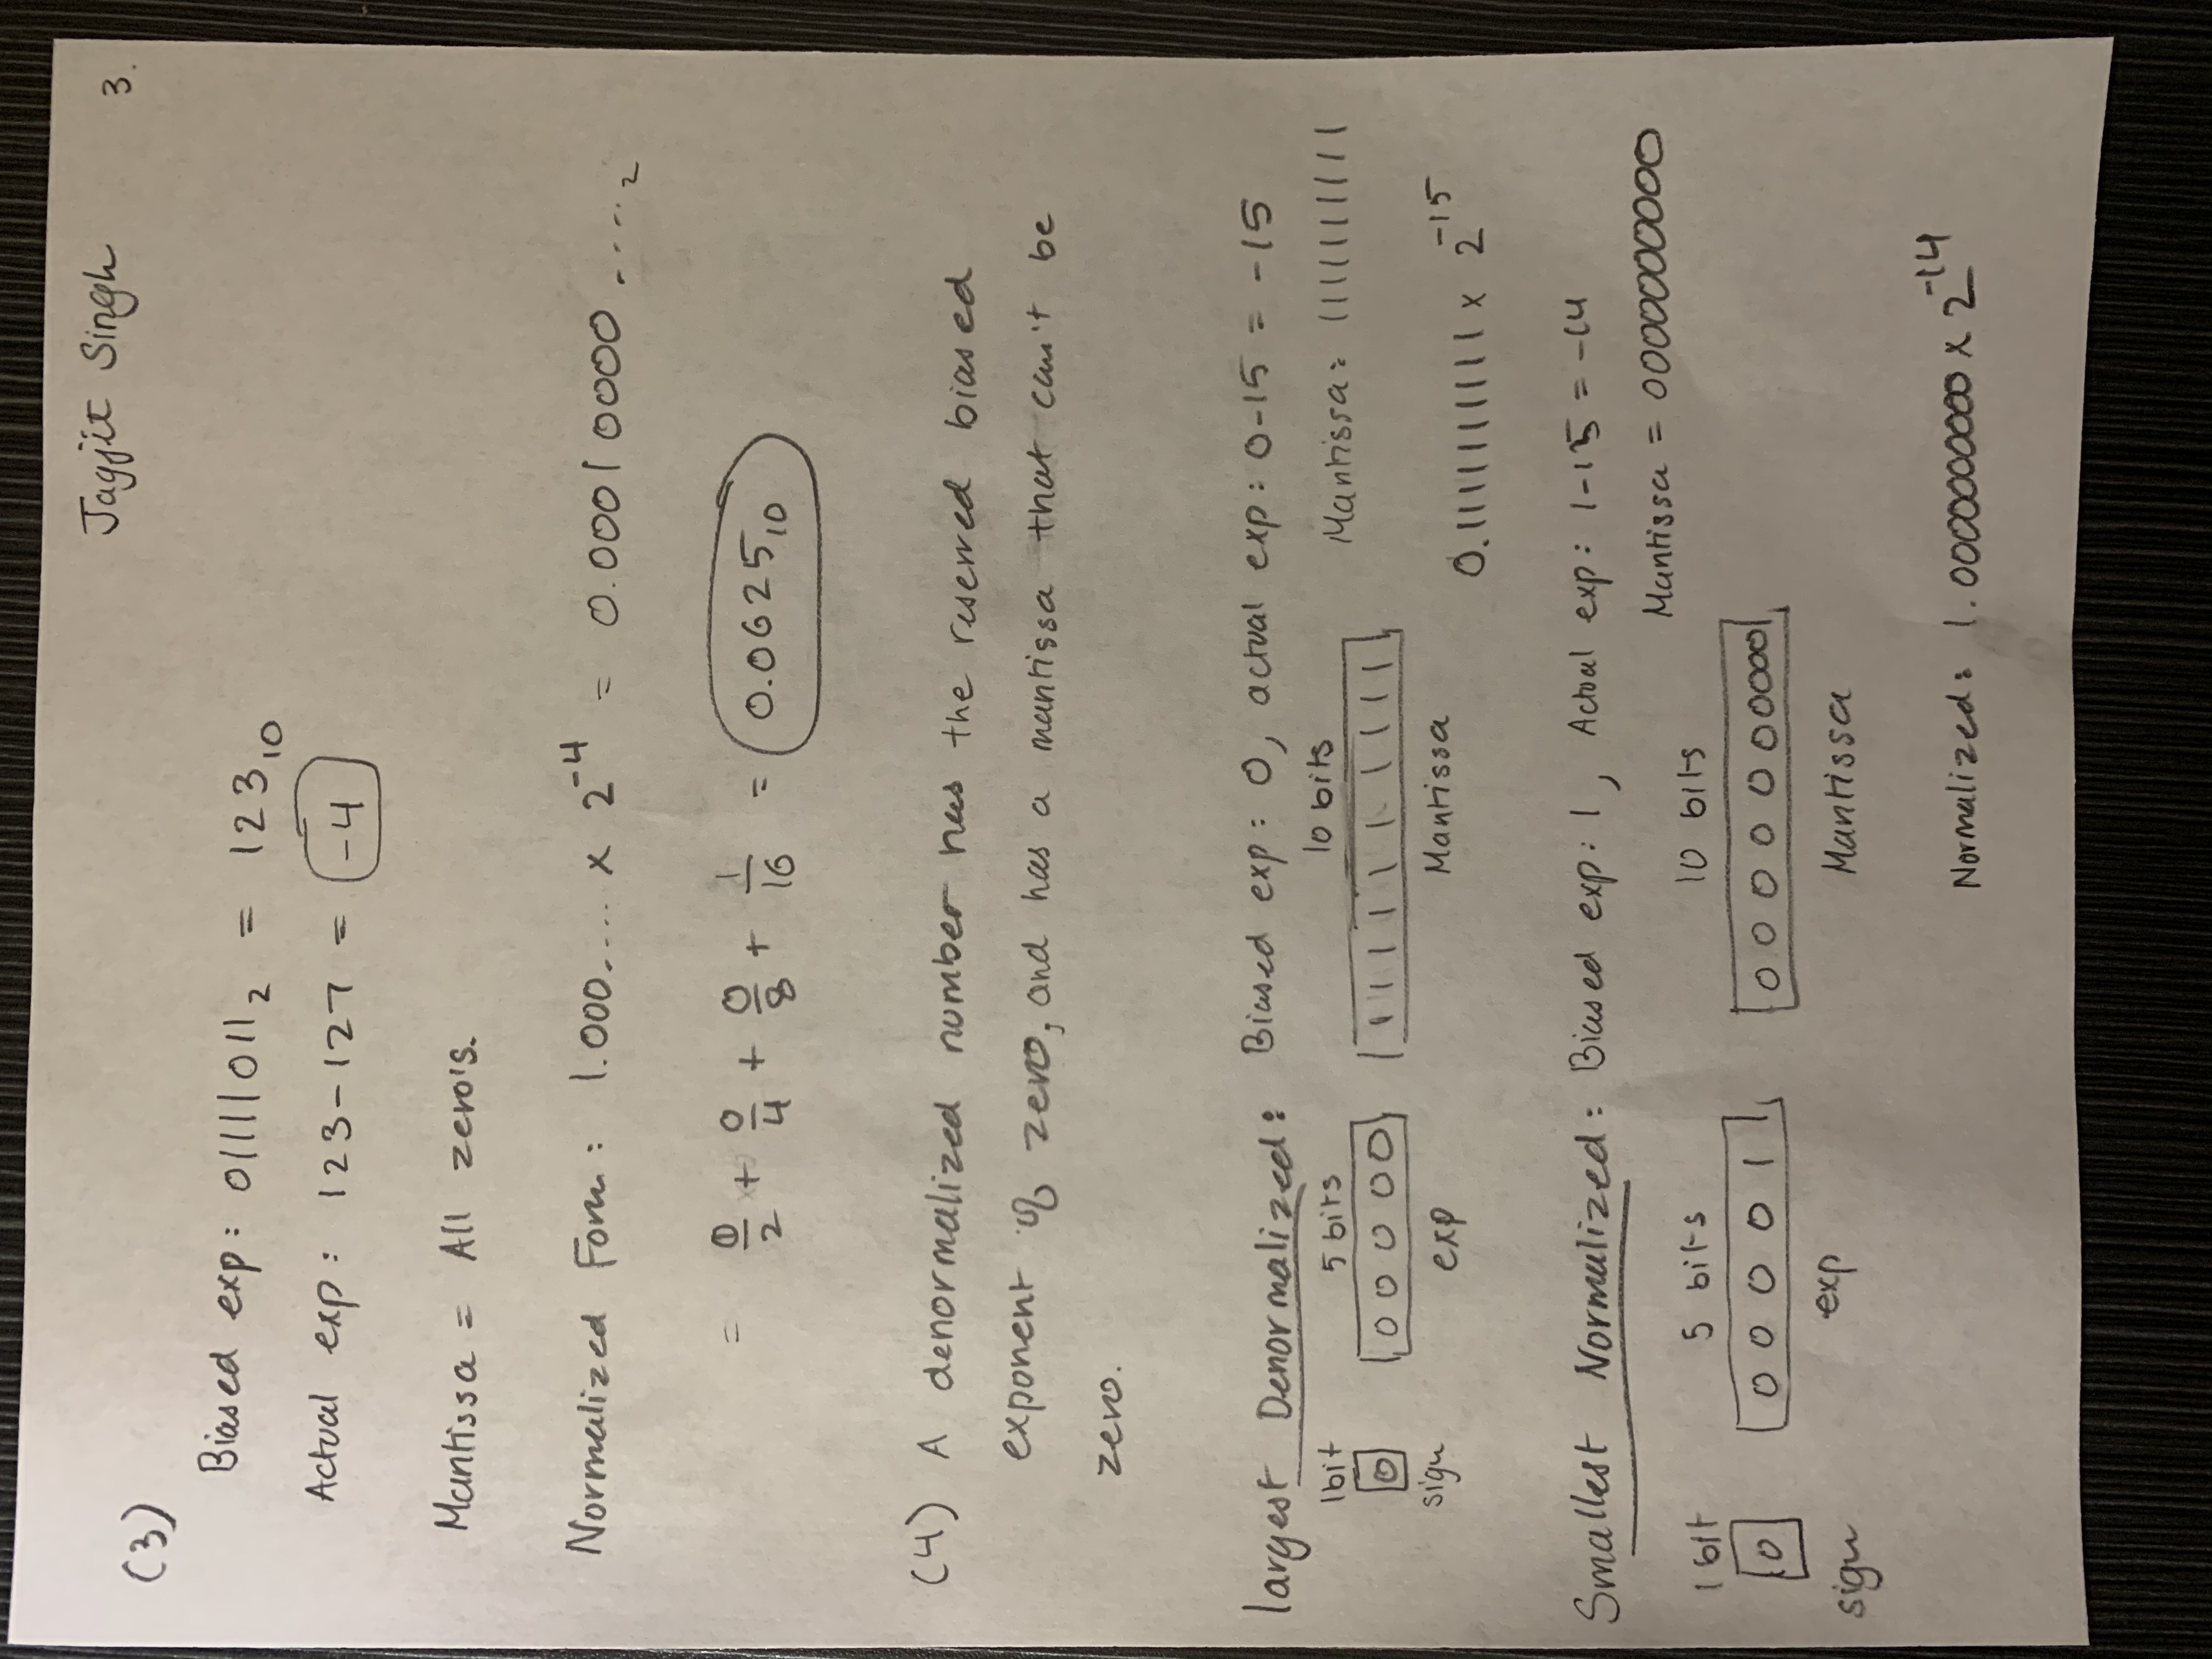 Jagjit Singh 3.
(3)
Biased exp: 01111011₂ = 123₁₀
Actual exp: 123-127 = -4
Mantissa = All zero's.
Normalized Form: 1.000.... x 2⁻⁴ = 0.00010000 .....₂
= 0/2 + 0/4 + 0/8 + 1/16 = 0.0625₁₀
(4) A denormalized number has the reserved biased
exponent of zero, and has a mantissa that can't be
zero.
largest Denormalized: Biased exp: 0, actual exp: 0-15 = -15
1bit 5 bits 10 bits
Mantissa: 1111111111
0 00000 1111111111
sign exp Mantissa
0.1111111111 x 2⁻¹⁵
Smallest Normalized: Biased exp: 1, Actual exp: 1-15 = -14
Mantissa = 0000000000
1 bit 5 bits 10 bits
0 00001 0000000000
sign exp Mantissa
Normalized: 1.0000000000 x 2⁻¹⁴